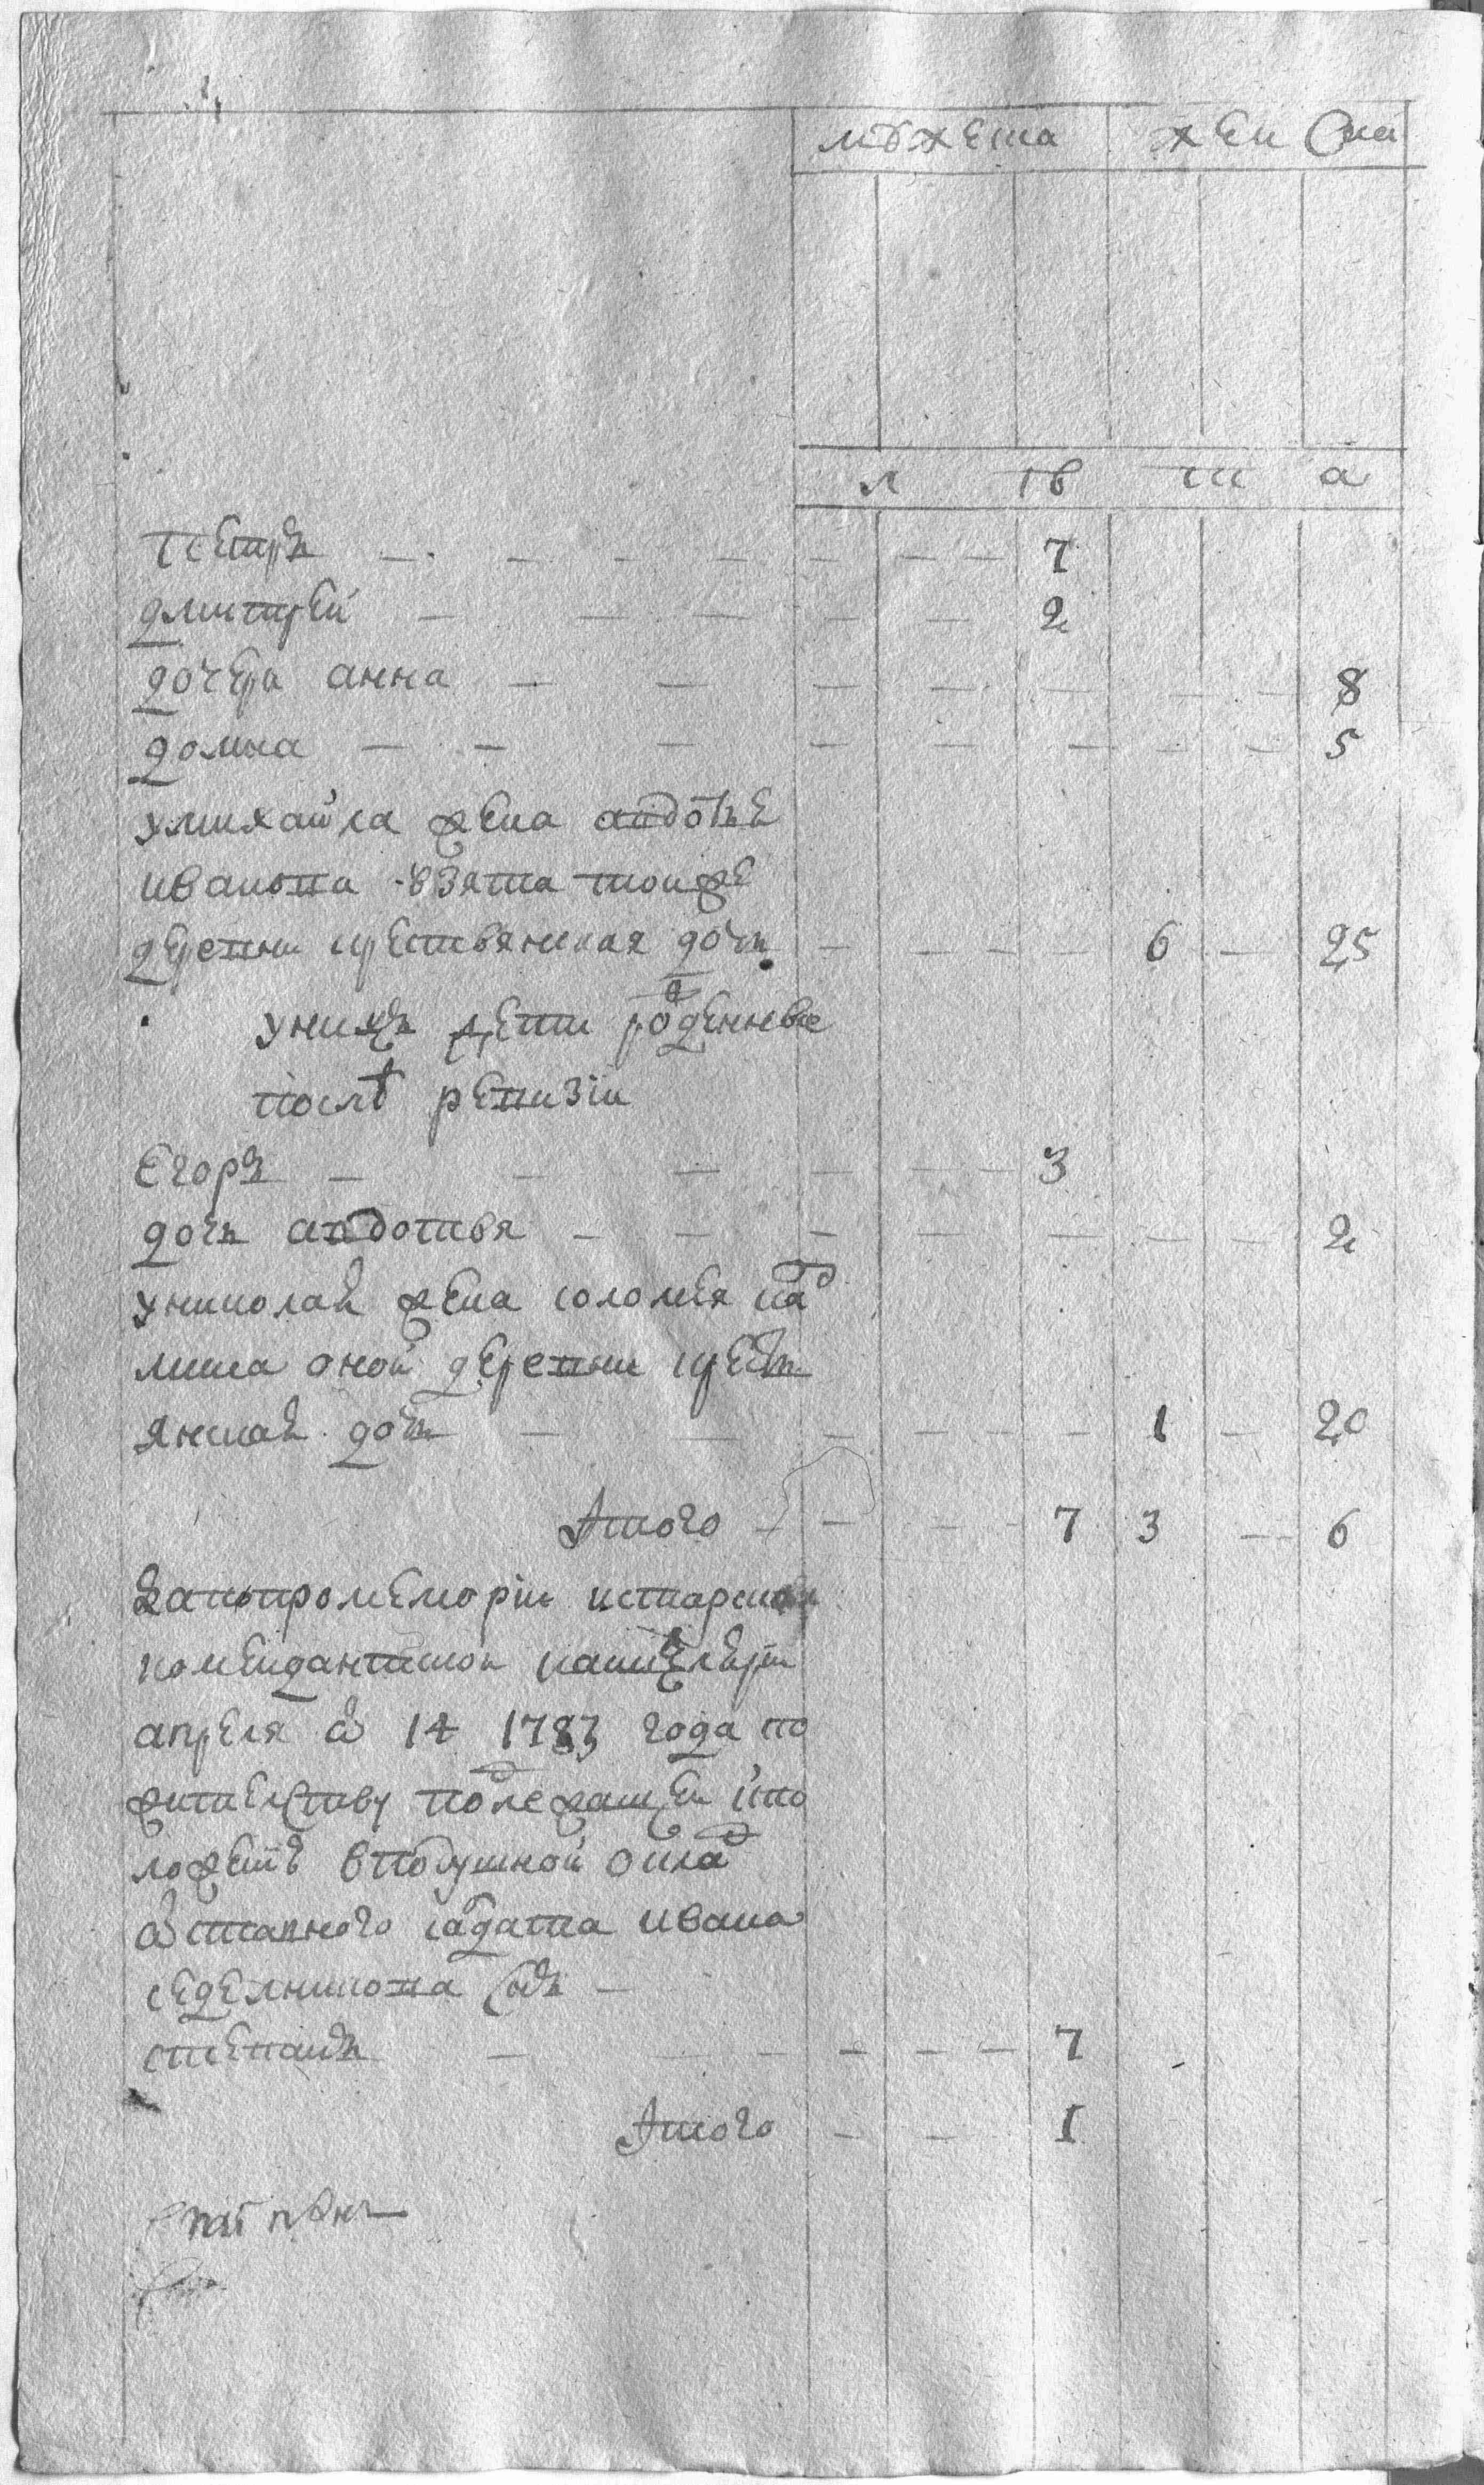 мужеска женска
л ѣ т а
Петръ 7
Дмитрей 2
дочери анна 8
домна 5
умихаила жена авдотье
иванова взята тоиже
деревни крестьянская дочь 6 25
унихъ дети рожденные
послѣ ревизiи
Егоръ 3
дочь авдотья 2
униколаѣ жена соломея
оной деревни крест
янская дочь 1 20
Итого 7 3 6
запопромеморiи истарской
комендантской канцелярiи
апреля от 14 1783 года по
жителству подлежащеи ипо
ложетъ вподушной оклад
отставного салдата ивана
седелникова сынъ
степанъ 7
Итого 1